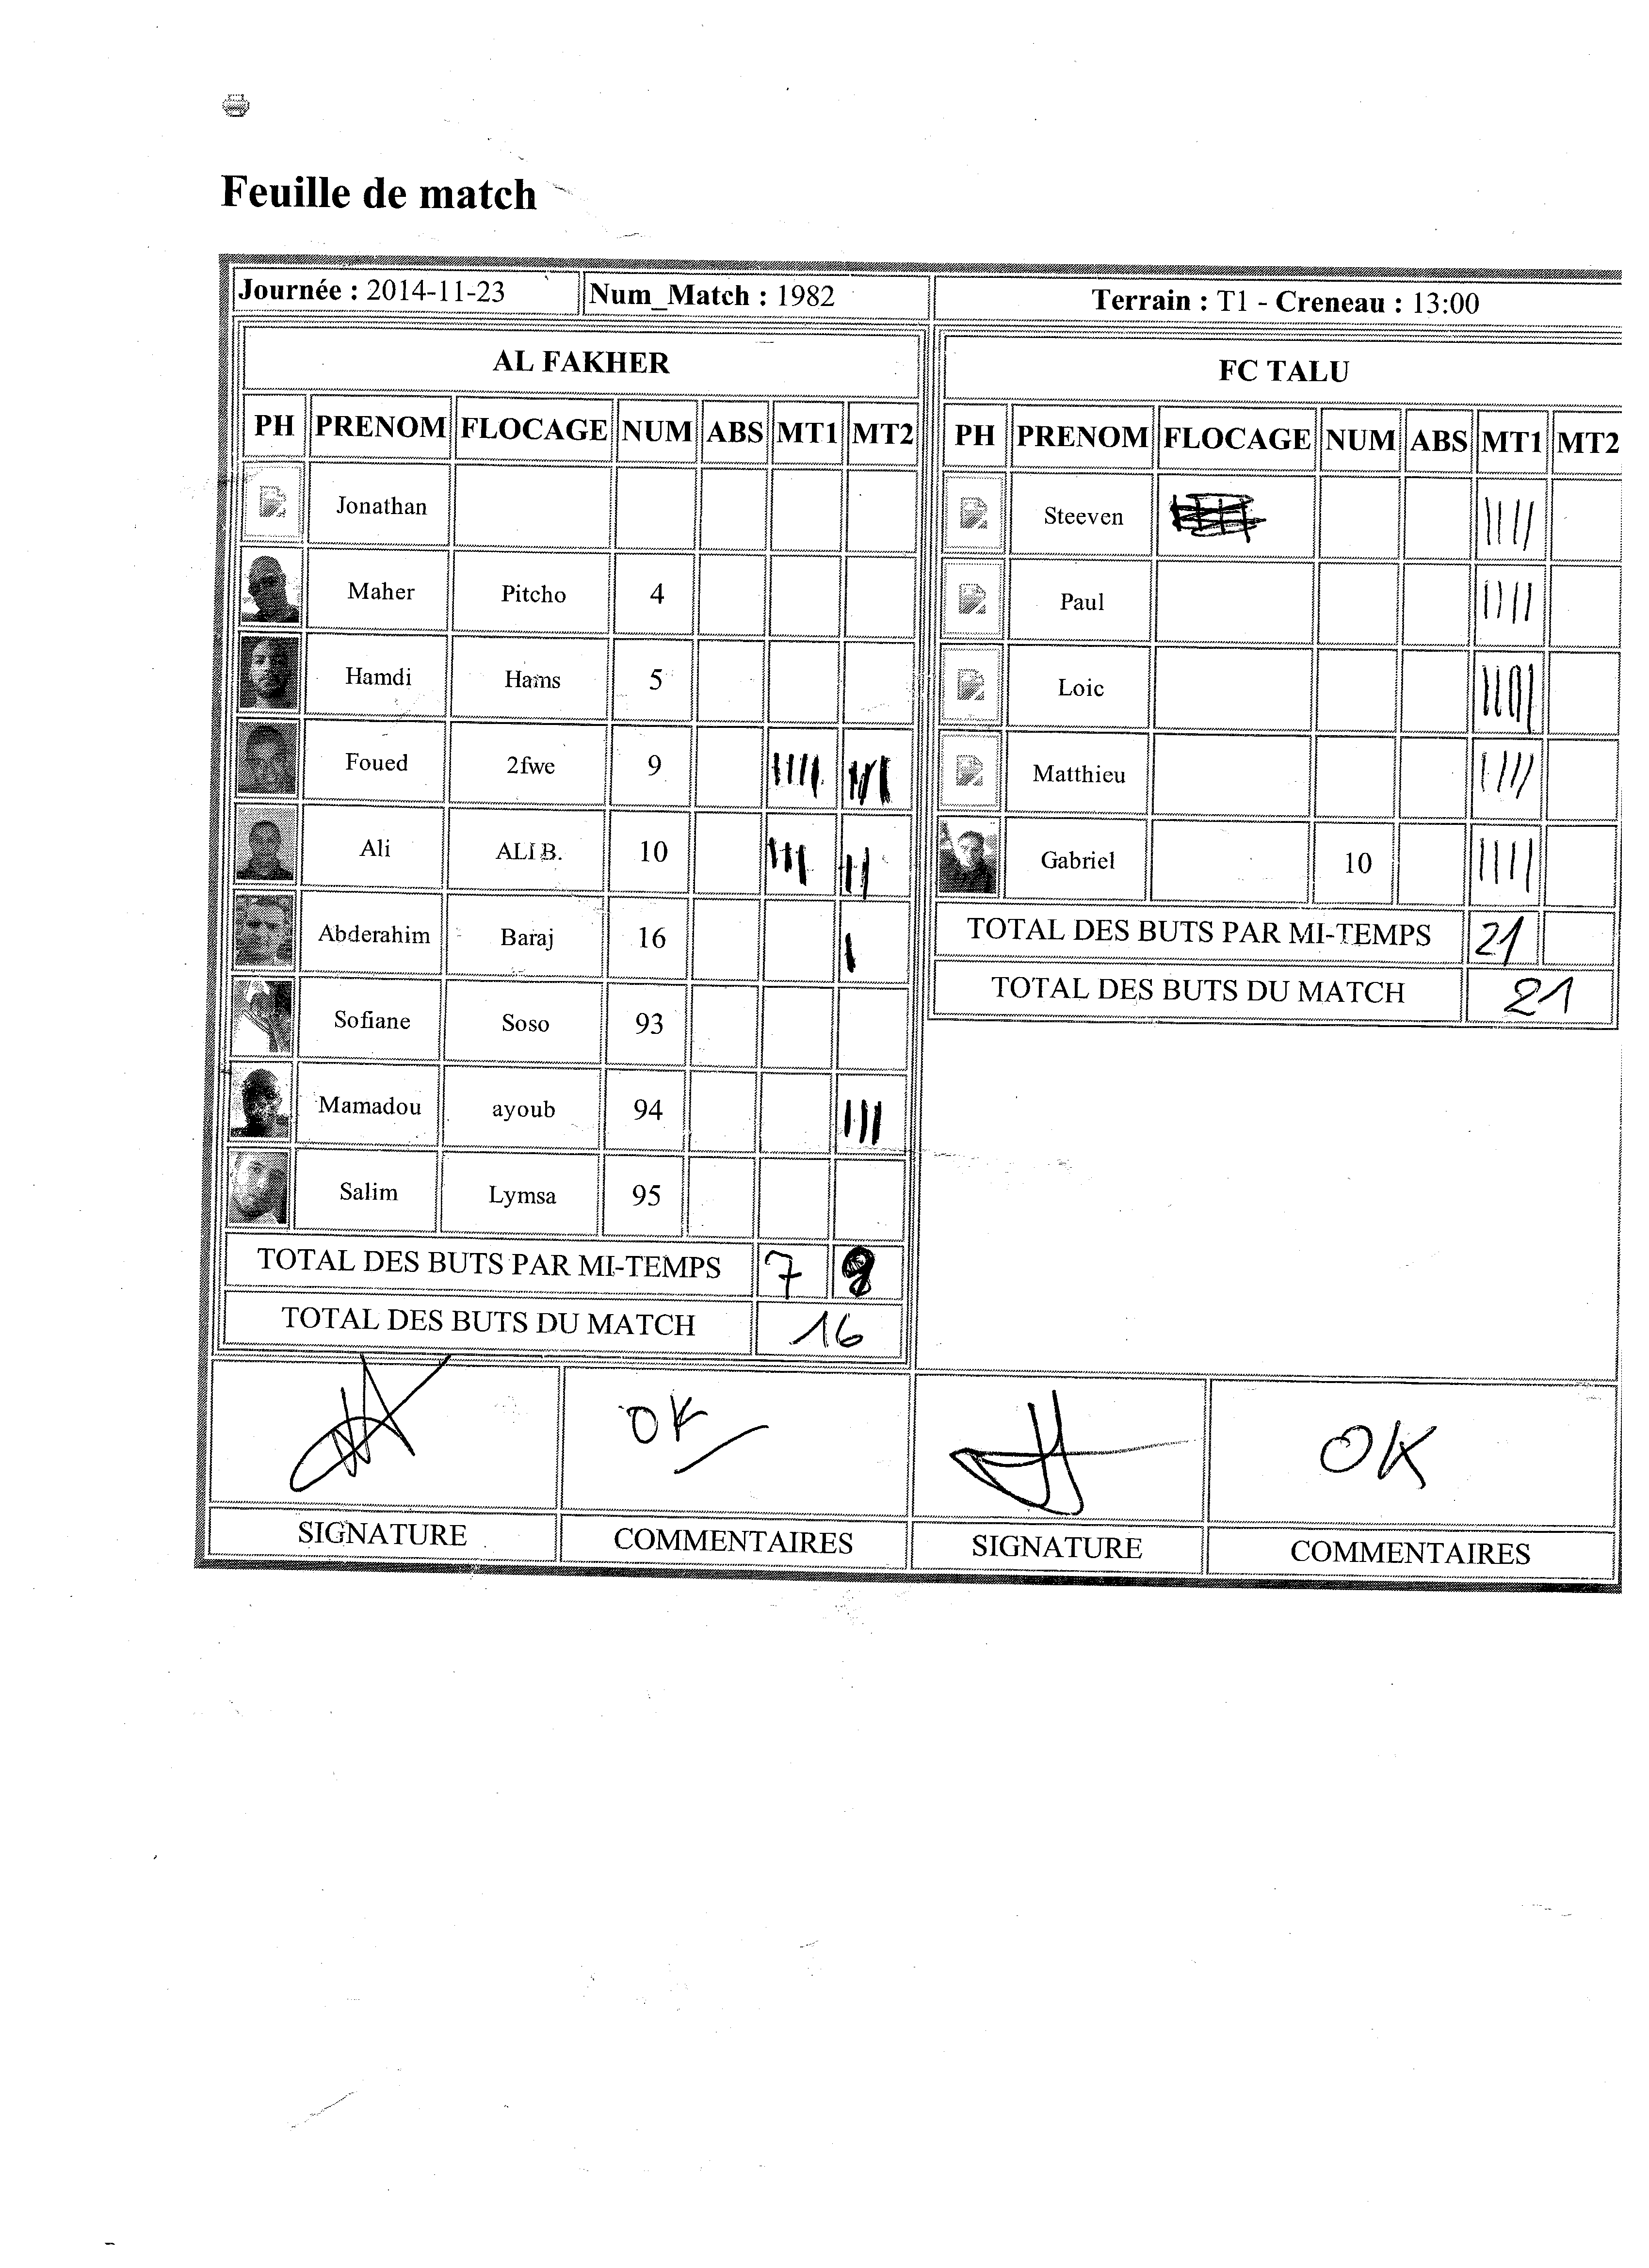 Feuille de match
Journée : 2014-11-23 Num_Match : 1982 Terrain : T1 - Creneau : 13:00
AL FAKHER
PH PRENOM FLOCAGE NUM ABS MT1 MT2
Jonathan
Maher Pitcho 4
Hamdi Hams 5
Foued 2fwe 9
Ali ALI B. 10
Abderahim Baraj 16
Sofiane Soso 93
Mamadou ayoub 94
Salim Lymsa 95
TOTAL DES BUTS PAR MI-TEMPS 7
TOTAL DES BUTS DU MATCH 16
FC TALU
PH PRENOM FLOCAGE NUM ABS MT1 MT2
Steeven
Paul
Loic
Matthieu
Gabriel 10
TOTAL DES BUTS PAR MI-TEMPS 21
TOTAL DES BUTS DU MATCH 21
OK OK
SIGNATURE COMMENTAIRES SIGNATURE COMMENTAIRES